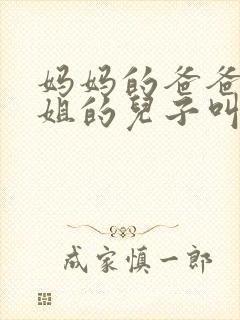 妈妈的爸爸
姐的兒子叫
成家慎一郎